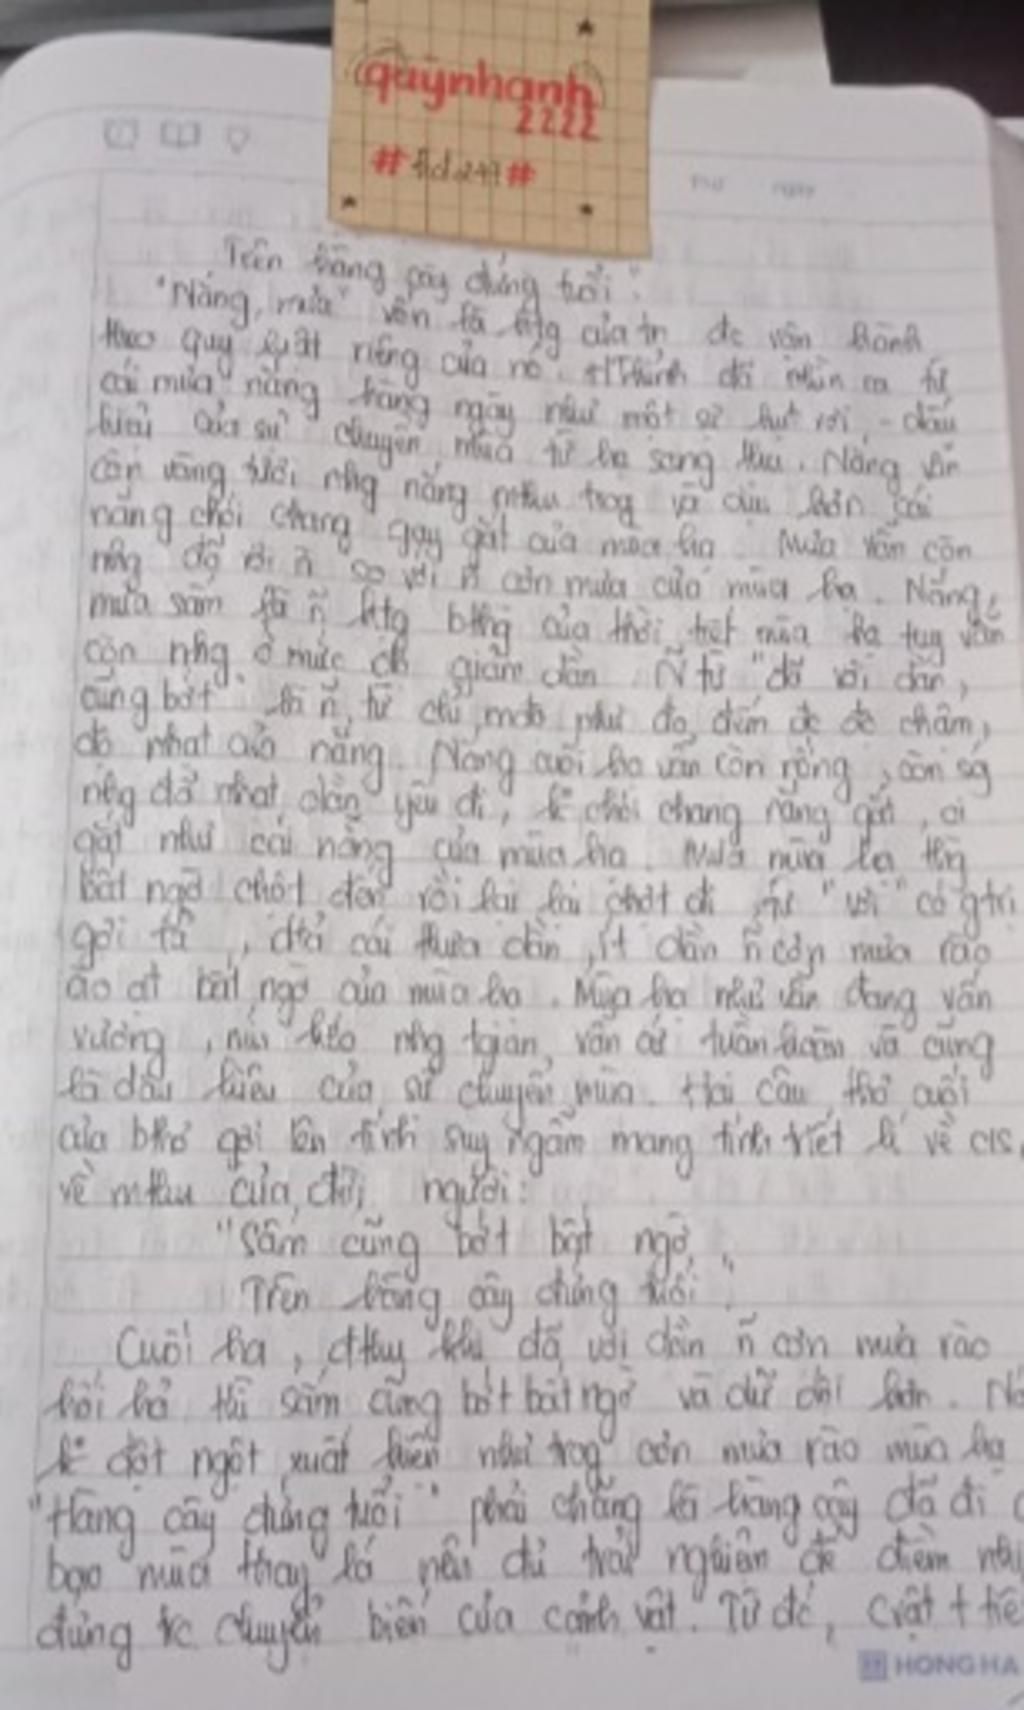 quỳnhanh
2222
#fid247#
Thứ ngày
Trên hàng cây đứng tuổi".
"Nắng, mưa" vốn là htg của tn đc vận hành
theo quy luật riêng của nó. HThỉnh đã nhìn ra từ
cái mưa, nắng hàng ngày như một sự hụt vơi, - dấu
hiệu của sự chuyển mùa từ hạ sang thu. Nắng vẫn
còn vàng tươi nhg nắng mthu trog và dịu hơn cái
nắng chói chang gay gắt của mùa hạ. Mưa vẫn còn
nhg đã vơi đi so với ~ cơn mưa của mùa hạ. Nắng,
mưa sấm là ~ htg bthg của thời tiết mùa hạ tuy vẫn
còn nhg ở mức độ giảm dần. ~ từ "đã vơi dần,
cũng bớt" là ~ từ chỉ mđộ như đo, đếm đc độ chậm,
độ nhạt của nắng. Nắng cuối hạ vẫn còn nồng, còn sg
nhg đã nhạt dần, yếu đi, k chói chang nắng gắt, oi
gắt như cái nắng của mùa hạ. Mưa mùa hạ thg
bất ngờ chợt đến rồi lại lại chợt đi, từ "vơi" có gtrị
gợi tả, dtả cái thưa dần, ít dần ~ cơn mưa rào
ào ạt bất ngờ của mùa hạ. Mùa hạ như vẫn đang vấn
vương, níu kéo nhg tgian vẫn cứ tuần hoàn và cũng
là dấu hiệu của sự chuyển mùa. Hai câu thơ cuối
của bthơ gợi lên tính suy ngẫm mang tính triết lí về c/s,
về mthu của đời người:
"Sấm cũng bớt bất ngờ,
Trên hàng cây đứng tuổi".
Cuối hạ, đthu khi đã vơi dần ~ cơn mưa rào
hối hả thì sấm cũng bớt bất ngờ và dữ dội hơn. Nó
k đột ngột xuất hiện như trog cơn mưa rào mùa hạ
"Hàng cây đứng tuổi" phải chăng là hàng cây đã đi
bao mùa thay lá nên đủ trải nghiệm để điềm
đứng trc chuyển biến của cảnh vật. Từ đó,
HONG HA